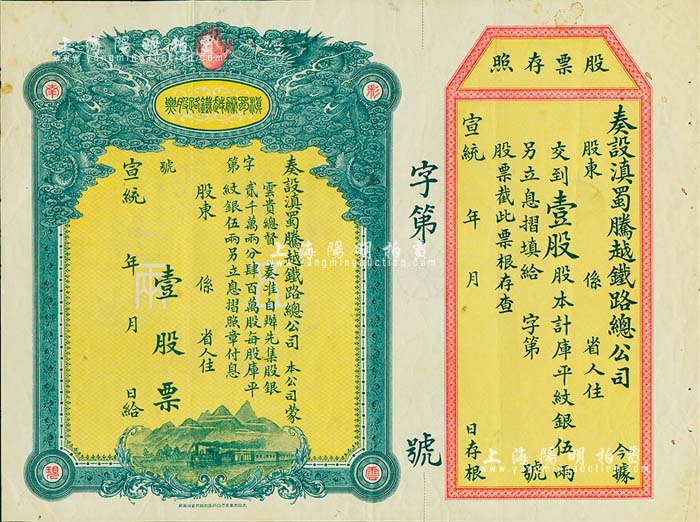 股票存照
奏設滇蜀騰越鐵路總公司 今據
股東 係 省人住
交到壹股股本計庫平紋銀伍兩
另立息摺填給 字第 號
股票截此票根存查
宣統 年 月 日存根
字第 號
滇蜀騰越鐵路股票
彩
南
雲
碧
奏設滇蜀騰越鐵路總公司 本公司蒙
雲貴總督 奏准自辦先集股銀
貳千萬兩分肆百萬股每股庫平
紋銀伍兩另立息摺照章付息
字第 號
股東 係 省人住
壹股票
宣統 年 月 日給
上海陽明拍賣
www.yangmingauction.com